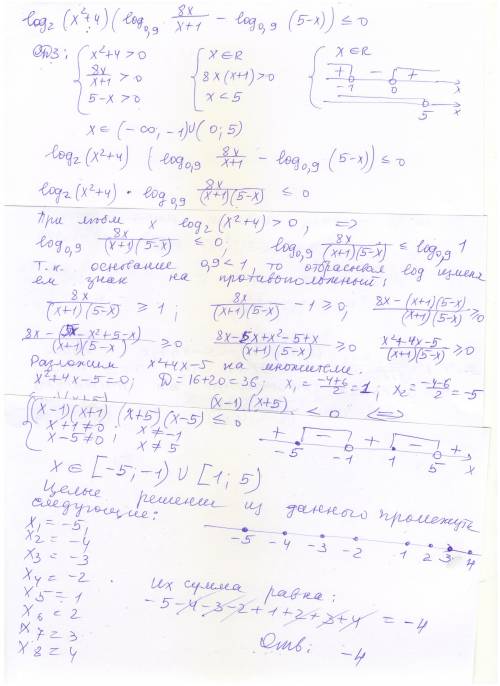 log₂(x²+4)(log₀,₉ 8x/(x+1) − log₀,₉ (5-x)) ≤ 0
ОДЗ: { x²+4>0 { x∈R { x∈R
8x/(x+1) > 0 8x(x+1)>0 + − + -1 0 x
5-x>0 x<5 5 x
x∈(-∞,-1)∪(0;5)
log₂(x²+4) (log₀,₉ 8x/(x+1) − log₀,₉ (5-x)) ≤ 0
log₂(x²+4) · log₀,₉ 8x/((x+1)(5-x)) ≤ 0
При любом x log₂(x²+4) > 0, ⇒
log₀,₉ 8x/((x+1)(5-x)) ≤ 0, log₀,₉ 8x/((x+1)(5-x)) ≤ log₀,₉ 1
Т.к. основание 0,9<1, то отбрасывая log изменя
ем знак на противоположный:
8x/((x+1)(5-x)) ≥ 1; 8x/((x+1)(5-x)) − 1 ≥ 0; (8x − (x+1)(5-x))/((x+1)(5-x)) ≥ 0
(8x − 5x − x² + 5 − x)/((x+1)(5-x)) ≥ 0 (8x − 5x + x² − 5 + x)/((x+1)(5-x)) ≥ 0 (x²+4x−5)/((x+1)(5-x)) ≥ 0
Разложим x²+4x−5 на множители.
x²+4x−5=0; D=16+20=36; x₁=(−4+6)/2=1; x₂=(−4−6)/2=−5
(x-1)(x+5) < 0 ⇔
{ (x-1)(x+1)(x+5)(x-5) ≤ 0
x+1≠0; x≠-1
x-5≠0 x≠5
+ − + − + -5 -1 1 5 x
x∈[-5;-1)∪[1;5)
Целые решении из данного промежутк
следующие:
-5 -4 -3 -2 1 2 3 4
x₁ = -5,
x₂ = -4
x₃ = -3
x₄ = -2
x₅ = 1
x₆ = 2
x₇ = 3
x₈ = 4
Их сумма равна:
-5-4-3-2+1+2+3+4 = -4
Отв: -4